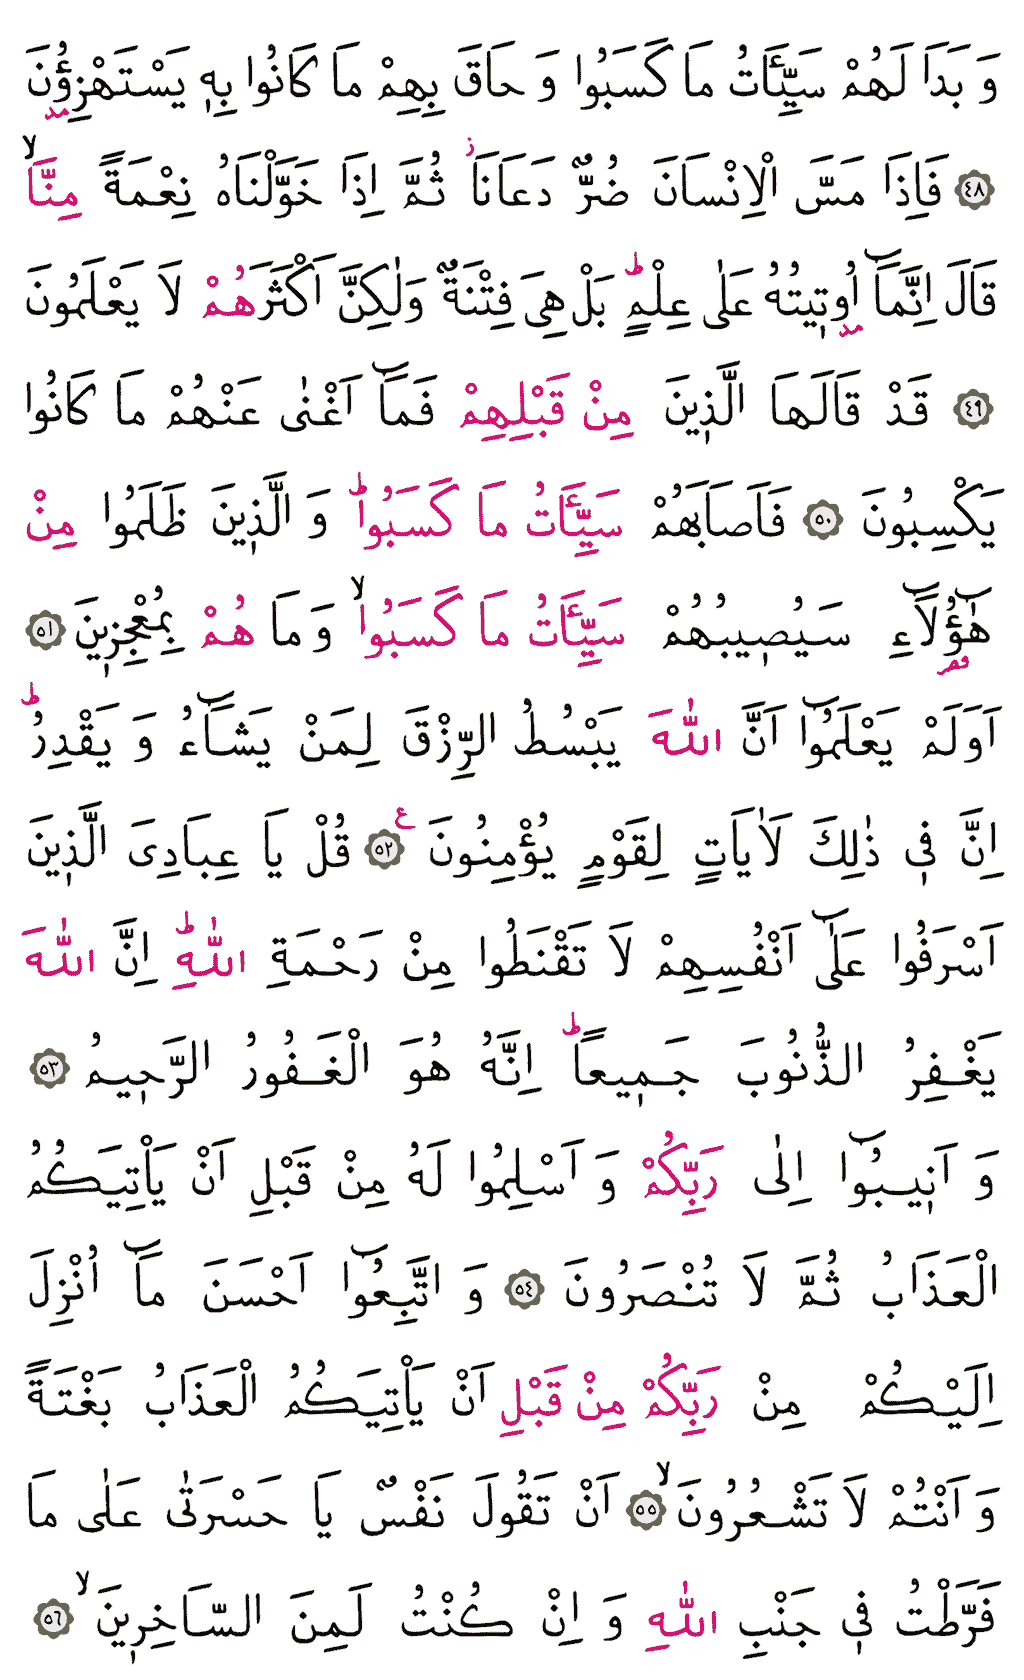 وَ بَدَا لَهُمْ سَيِّئَاتُ مَا كَسَبُوا وَ حَاقَ بِهِمْ مَا كَانُوا بِهٖ يَسْتَهْزِؤُنَ
﴿٤٨﴾ فَاِذَا مَسَّ الْاِنْسَانَ ضُرٌّ دَعَانَاۘ ثُمَّ اِذَا خَوَّلْنَاهُ نِعْمَةً مِنَّاۙ
قَالَ اِنَّمَٓا اُو۫تٖيتُهُ عَلٰى عِلْمٍؕ بَلْ هِيَ فِتْنَةٌ وَلٰكِنَّ اَكْثَرَهُمْ لَا يَعْلَمُونَ
﴿٤٩﴾ قَدْ قَالَهَا الَّذٖينَ مِنْ قَبْلِهِمْ فَمَٓا اَغْنٰى عَنْهُمْ مَا كَانُوا
يَكْسِبُونَ ﴿٥٠﴾ فَاَصَابَهُمْ سَيِّئَاتُ مَا كَسَبُواؕ وَ الَّذٖينَ ظَلَمُوا مِنْ
هٰٓؤُلَٓاءِ سَيُصٖيبُهُمْ سَيِّئَاتُ مَا كَسَبُواۙ وَ مَا هُمْ بِمُعْجِزٖينَ ﴿٥١﴾
اَوَلَمْ يَعْلَمُٓوا اَنَّ اللّٰهَ يَبْسُطُ الرِّزْقَ لِمَنْ يَشَٓاءُ وَ يَقْدِرُؕ
اِنَّ فٖي ذٰلِكَ لَاٰيَاتٍ لِقَوْمٍ يُؤْمِنُونَ ع ﴿٥٢﴾ قُلْ يَا عِبَادِيَ الَّذٖينَ
اَسْرَفُوا عَلٰٓى اَنْفُسِهِمْ لَا تَقْنَطُوا مِنْ رَحْمَةِ اللّٰهِؕ اِنَّ اللّٰهَ
يَغْفِرُ الذُّنُوبَ جَمٖيعاًؕ اِنَّهُ هُوَ الْغَفُورُ الرَّحٖيمُ ﴿٥٣﴾
وَ اَنٖيبُٓوا اِلٰى رَبِّكُمْ وَ اَسْلِمُوا لَهُ مِنْ قَبْلِ اَنْ يَأْتِيَكُمُ
الْعَذَابُ ثُمَّ لَا تُنْصَرُونَ ﴿٥٤﴾ وَ اتَّبِعُٓوا اَحْسَنَ مَٓا اُنْزِلَ
اِلَيْكُمْ مِنْ رَبِّكُمْ مِنْ قَبْلِ اَنْ يَأْتِيَكُمُ الْعَذَابُ بَغْتَةً
وَ اَنْتُمْ لَا تَشْعُرُونَۙ ﴿٥٥﴾ اَنْ تَقُولَ نَفْسٌ يَا حَسْرَتٰى عَلٰى مَا
فَرَّطْتُ فٖي جَنْبِ اللّٰهِ وَ اِنْ كُنْتُ لَمِنَ السَّاخِرٖينَۙ ﴿٥٦﴾